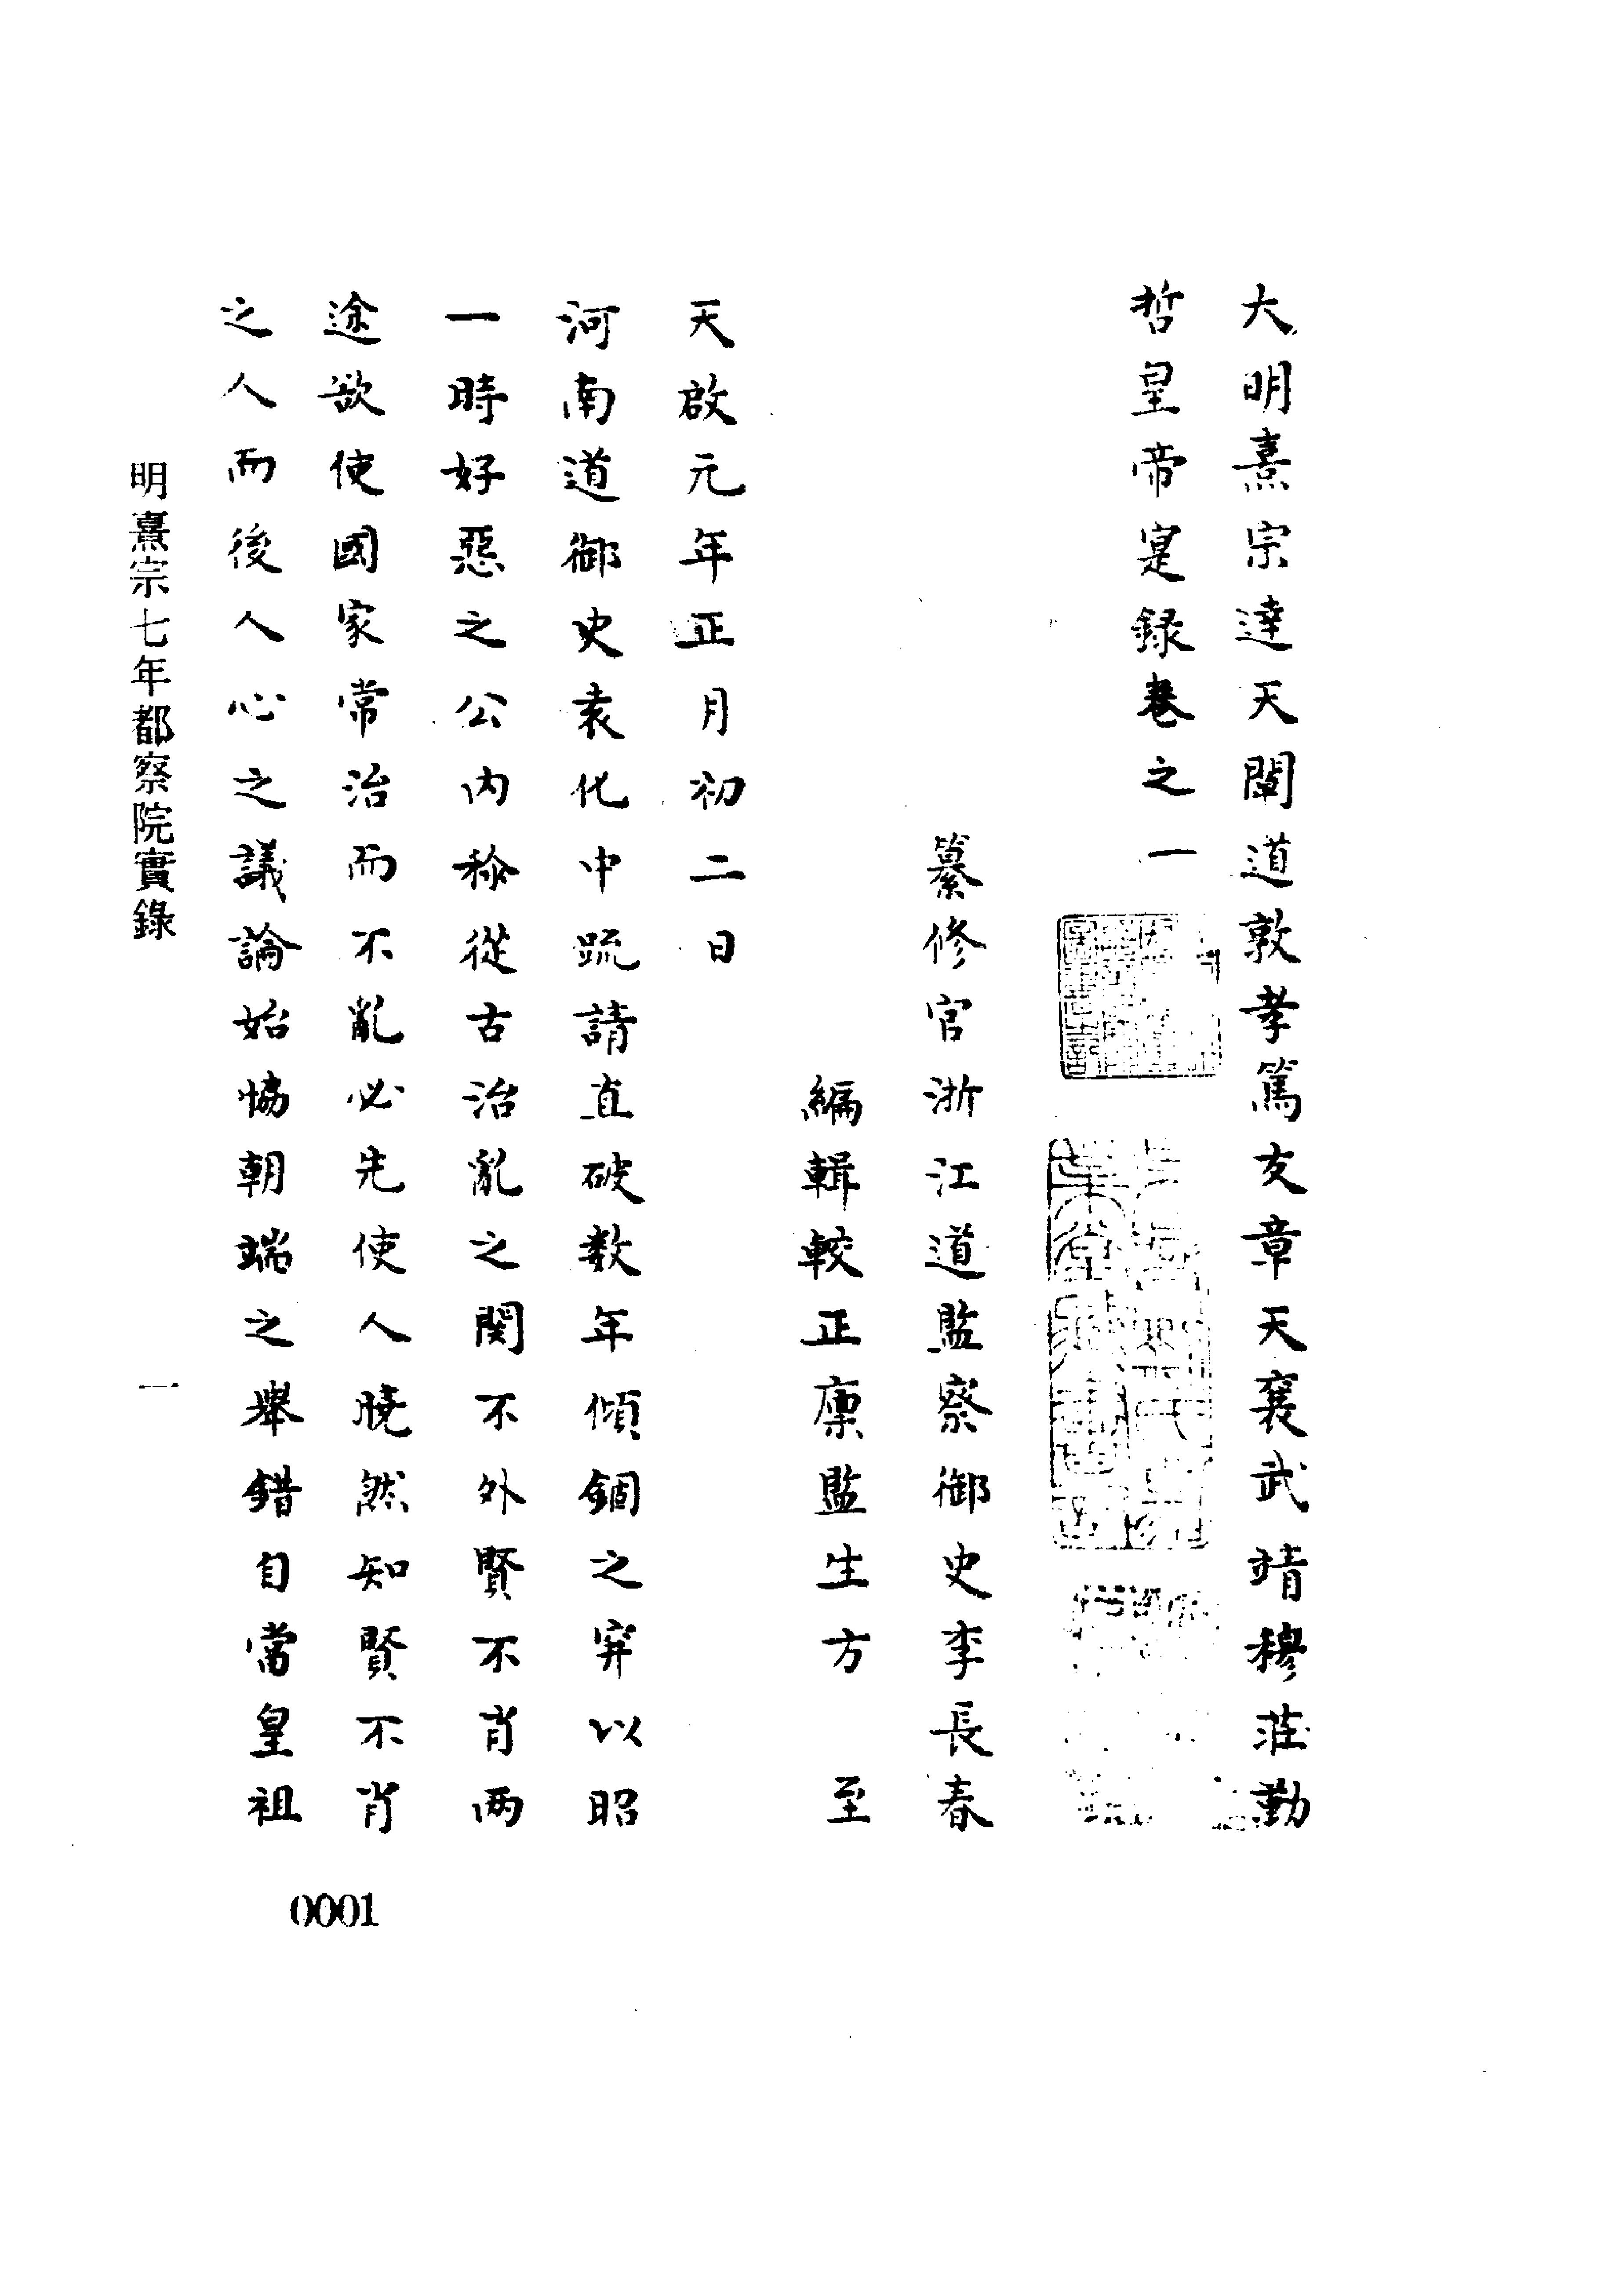 大明熹宗達天闡道敦孝篤友章天襄武靖穆莊勤
哲皇帝寔録卷之一
纂修官浙江道監察御史李長春
編輯較正廩監生方 至
天啟元年正月初二日
河南道御史袁化中疏請直破数年傾錮之穽以昭
一時好惡之公内称從古治亂之関不外賢不肖两
途欲使國家常治而不亂必先使人曉然知賢不肖
之人而後人心之議論始恊朝端之舉錯自當皇祖
明熹宗七年都察院實錄
一
0001